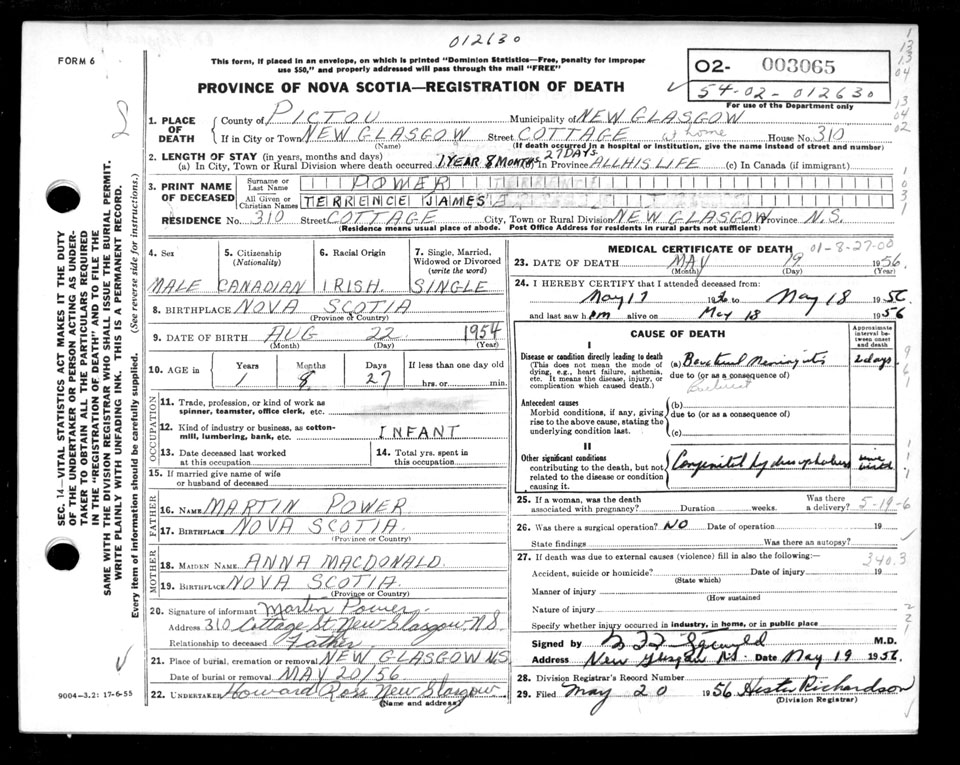 012630
FORM 6
This form, if placed in an envelope, on which is printed "Dominion Statistics—Free, penalty for improper
use $50," and properly addressed will pass through the mail "FREE"
O2- 003065
54-02-012630
For use of the Department only
PROVINCE OF NOVA SCOTIA—REGISTRATION OF DEATH
1. PLACE OF DEATH
County of PICTOU Municipality of NEW GLASGOW
If in City or Town NEW GLASGOW Street COTTAGE at home House No. 310
(Name) (If death occurred in a hospital or institution, give the name instead of street and number)
2. LENGTH OF STAY (in years, months and days)
(a) In City, Town or Rural Division where death occurred 1 YEAR 8 MONTHS 27 DAYS (b) In Province ALL HIS LIFE (c) In Canada (if immigrant)
3. PRINT NAME OF DECEASED
Surname or Last Name POWER
All Given or Christian Names TERRENCE JAMES
RESIDENCE No. 310 Street COTTAGE City, Town or Rural Division NEW GLASGOW Province N.S.
(Residence means usual place of abode. Post Office Address for residents in rural parts not sufficient)
4. Sex MALE
5. Citizenship (Nationality) CANADIAN
6. Racial Origin IRISH.
7. Single, Married, Widowed or Divorced (write the word) SINGLE
8. BIRTHPLACE NOVA SCOTIA
(Province or Country)
9. DATE OF BIRTH AUG 22 1954
(Month) (Day) (Year)
10. AGE in Years Months Days If less than one day old
1 8 27 hrs. or min.
OCCUPATION
11. Trade, profession, or kind of work as spinner, teamster, office clerk, etc.
12. Kind of industry or business, as cotton-mill, lumbering, bank, etc. INFANT
13. Date deceased last worked at this occupation
14. Total yrs. spent in this occupation
15. If married give name of wife or husband of deceased
FATHER
16. NAME MARTIN POWER
17. BIRTHPLACE NOVA SCOTIA.
(Province or Country)
MOTHER
18. MAIDEN NAME ANNA MACDONALD.
19. BIRTHPLACE NOVA SCOTIA.
(Province or Country)
20. Signature of informant Martin Power.
Address 310 Cottage St. New Glasgow N.S.
Relationship to deceased Father
21. Place of burial, cremation or removal NEW GLASGOW NS
Date of burial or removal MAY 20/56
22. UNDERTAKER Howard Ross New Glasgow
(Name and address)
9004-3.2: 17-6-55
MEDICAL CERTIFICATE OF DEATH
01-8-27-00
23. DATE OF DEATH MAY 19 1956.
(Month) (Day) (Year)
24. I HEREBY CERTIFY that I attended deceased from:
May 17 1956 to May 18 1956
and last saw him alive on May 18 1956
CAUSE OF DEATH
Approximate interval between onset and death
I
Disease or condition directly leading to death
(This does not mean the mode of dying, e.g., heart failure, asthenia, etc. It means the disease, injury, or complication which caused death.)
(a) Bacterial Meningitis 2 days
due to (or as a consequence of)
Antecedent causes
Morbid conditions, if any, giving rise to the above cause, stating the underlying condition last.
(b)
due to (or as a consequence of)
(c)
II
Other significant conditions
contributing to the death, but not related to the disease or condition causing it.
Congenital hydrocephalus since birth
25. If a woman, was the death associated with pregnancy? Duration weeks. Was there a delivery?
5-19-6
26. Was there a surgical operation? NO Date of operation 19
State findings Was there an autopsy?
27. If death was due to external causes (violence) fill in also the following:
340.3
Accident, suicide or homicide? Date of injury 19
(State which)
Manner of injury
(How sustained
Nature of injury
Specify whether injury occurred in industry, in home, or in public place
Signed by M.D.
Address New Glasgow N.S. Date May 19 1956.
28. Division Registrar's Record Number
29. Filed May 20 1956 Hester Richardson
(Division Registrar)
SEC. 14—VITAL STATISTICS ACT MAKES IT THE DUTY
OF THE UNDERTAKER OR PERSON ACTING AS UNDERTAKER
TO OBTAIN ALL THE PARTICULARS REQUIRED
IN THE "REGISTRATION OF DEATH" AND TO FILE THE
SAME WITH THE DIVISION REGISTRAR WHO SHALL ISSUE THE BURIAL PERMIT.
WRITE PLAINLY WITH UNFADING INK. THIS IS A PERMANENT RECORD.
Every item of information should be carefully supplied. (See reverse side for instructions.)